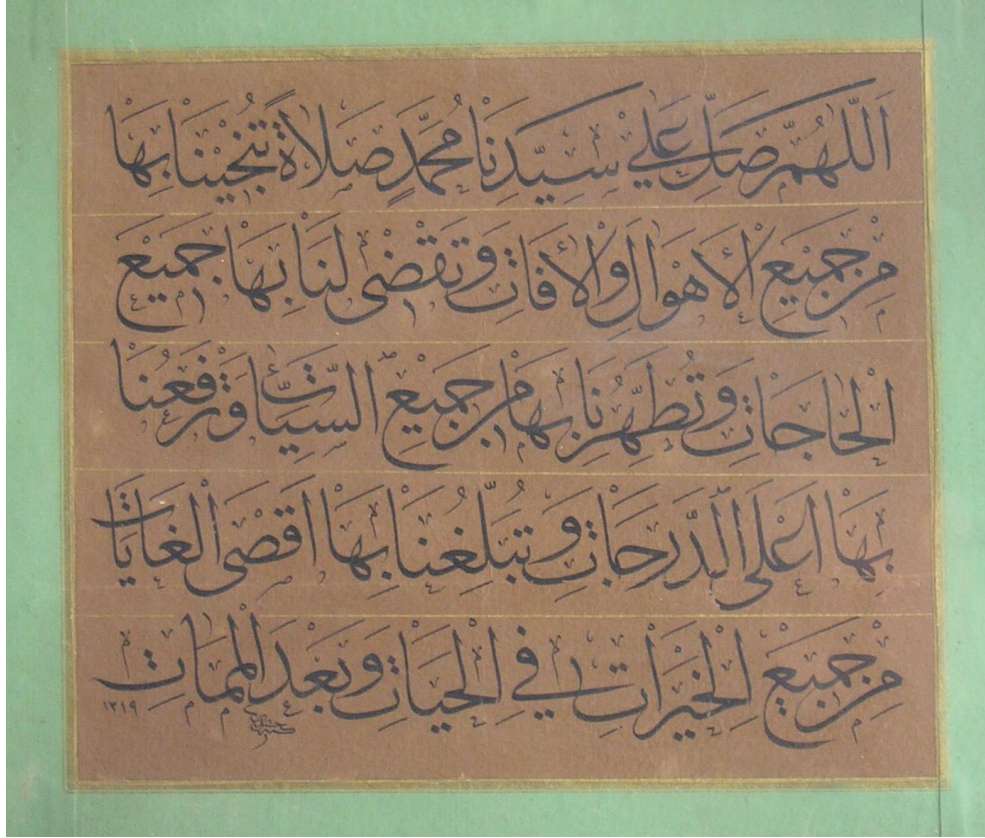 اَللّٰهُمَّ صَلِّ عَلٰي سَيِّدِنَا مُحَمَّدٍ صَلَاةً تُنْجِينَا بِهَا
مِنْ جَمِيْعِ الْأَهْوَالِ وَالْأٰفَاتِ وَتَقْضٰى لَنَا بِهَا جَمِيْعَ
الْحَاجَاتِ وَتُطَهِّرُنَا بِهَا مِنْ جَمِيْعِ السَّيِّئَاتِ وَتَرْفَعُنَا
بِهَا اَعْلَى الدَّرَجَاتِ وَتُبَلِّغُنَا بِهَا اَقْصَى الْغَايَاتِ
مِنْ جَمِيْعِ الْخَيْرَاتِ فِي الْحَيَاتِ وَبَعْدَ الْمَمَاتِ
١٣١٩